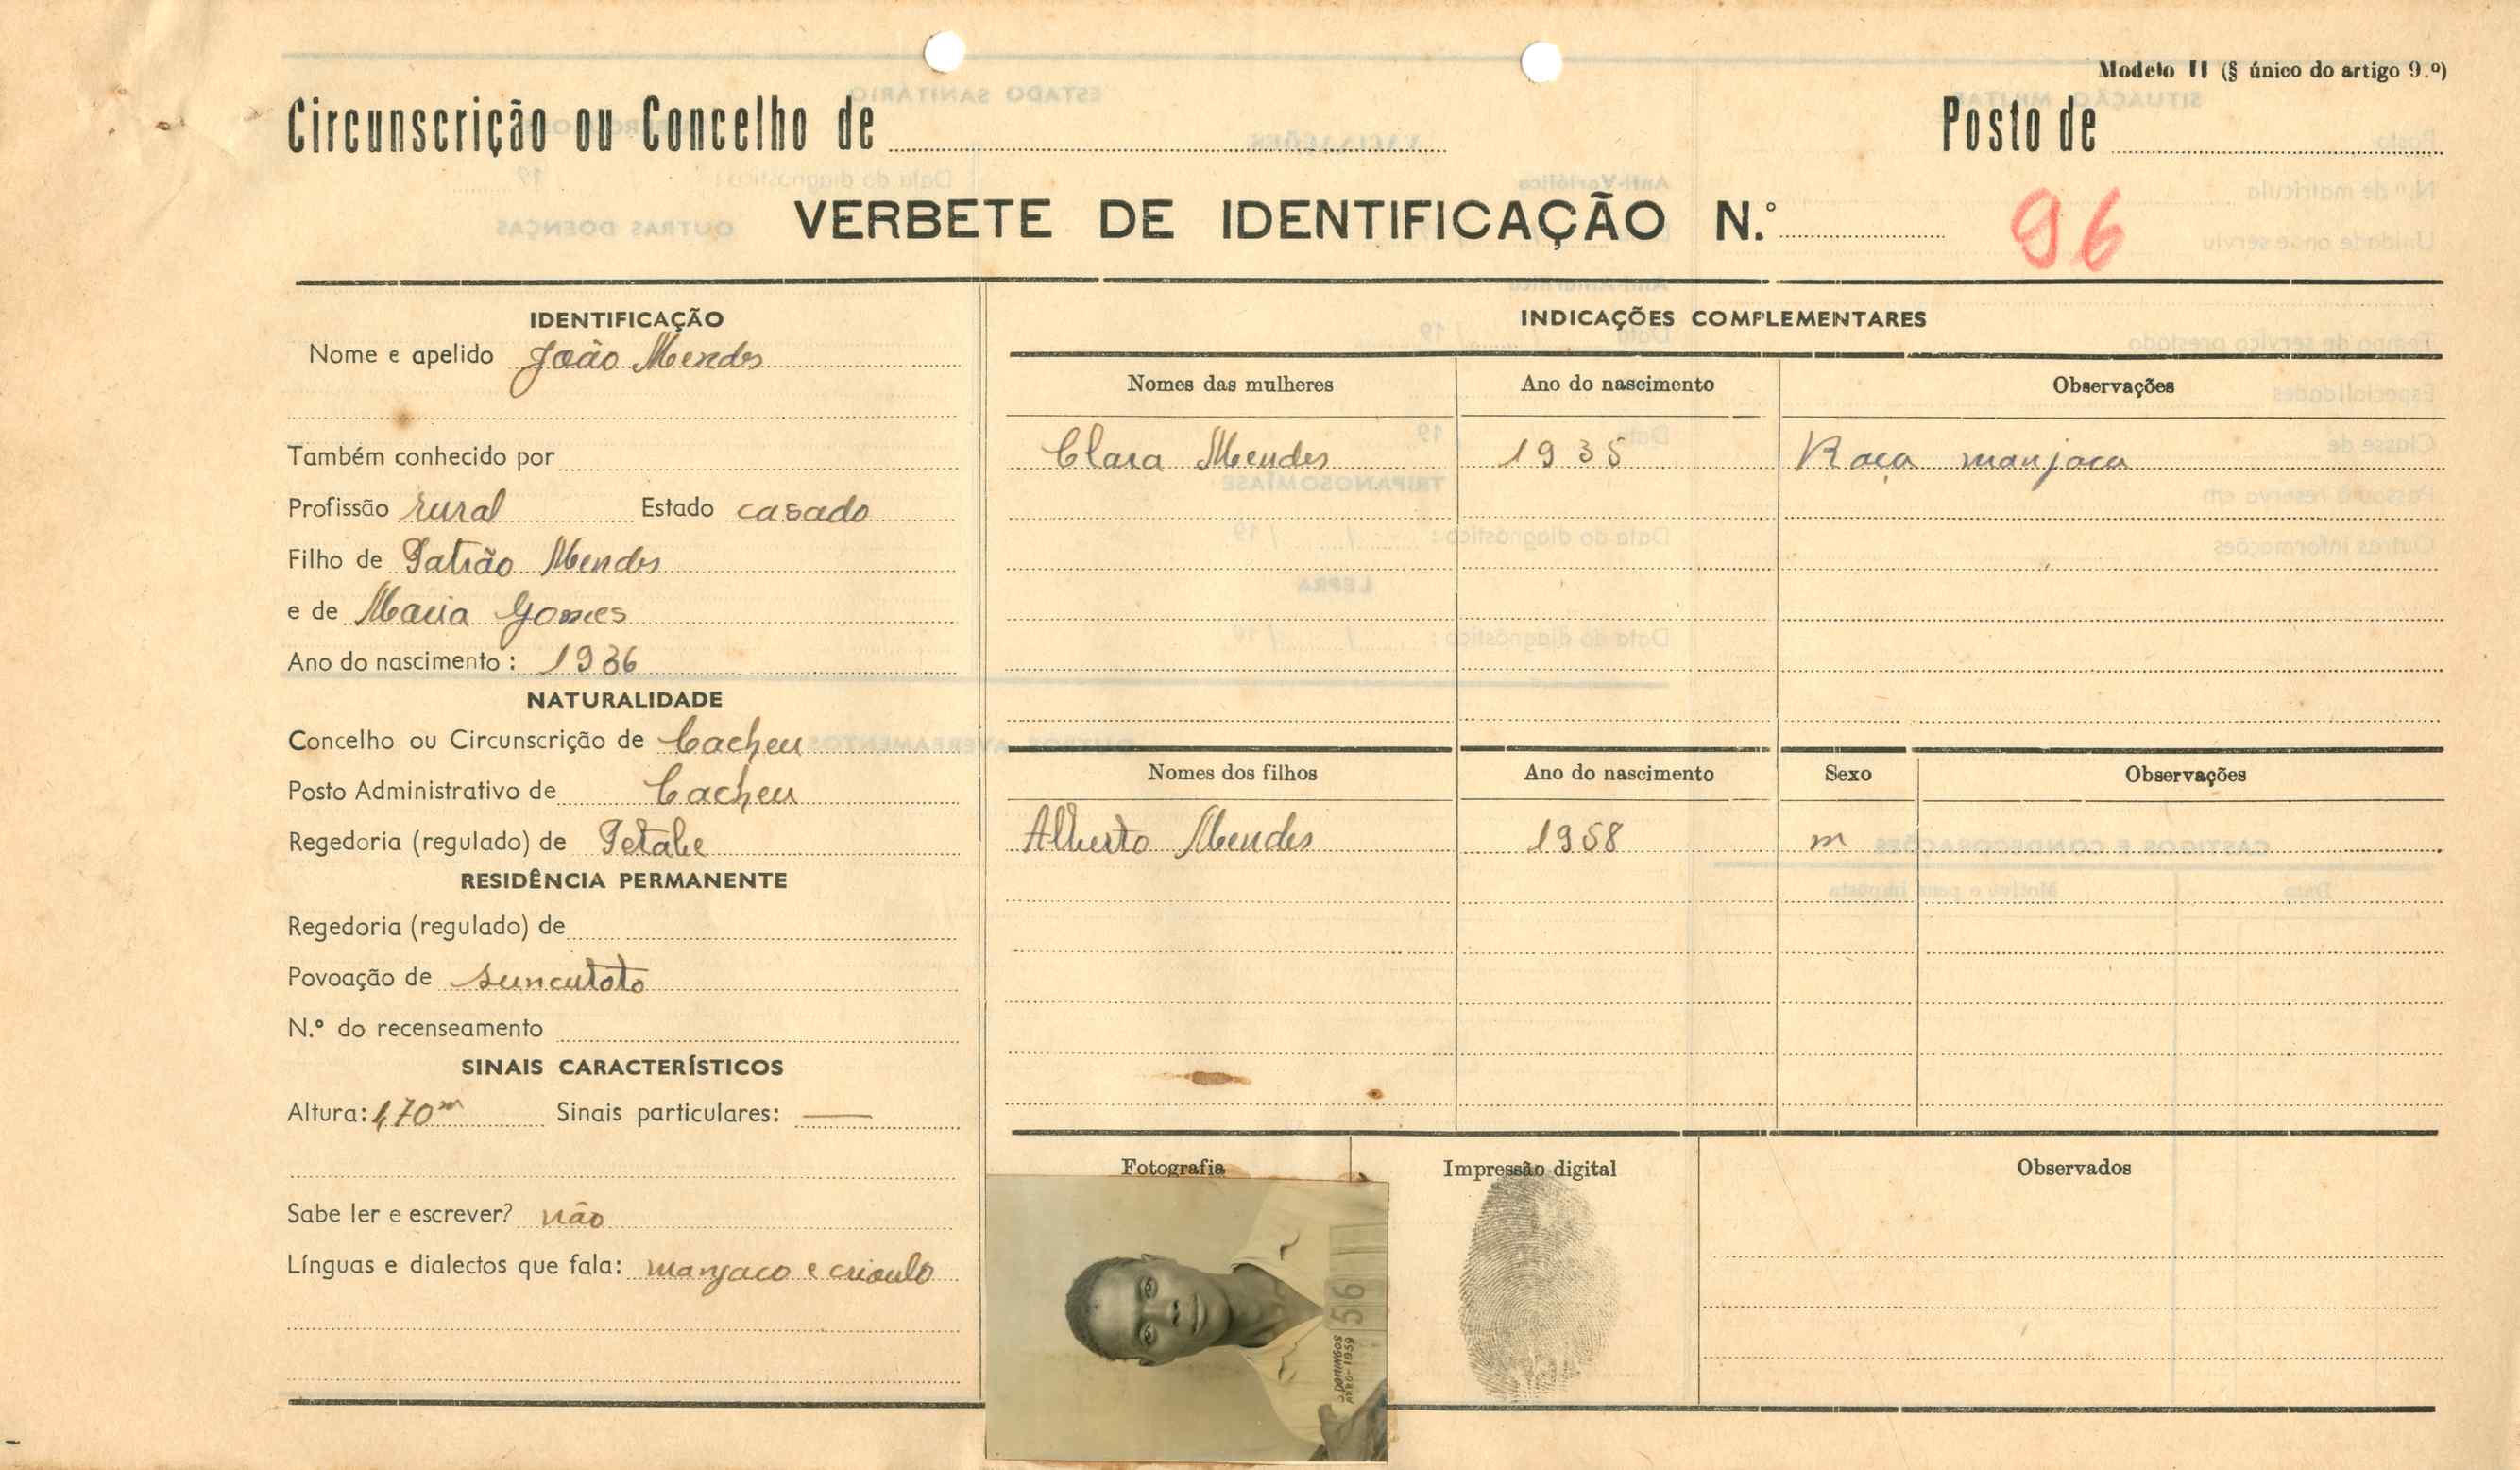 Modelo II (§ único do artigo 9.º)
Circunscrição ou Concelho de Posto de
VERBETE DE IDENTIFICAÇÃO N.º 96
IDENTIFICAÇÃO
Nome e apelido João Mendes
Também conhecido por
Profissão rural Estado casado
Filho de Patrão Mendes
e de Maria Gomes
Ano do nascimento: 1936
NATURALIDADE
Concelho ou Circunscrição de Cacheu
Posto Administrativo de Cacheu
Regedoria (regulado) de Petabe
RESIDÊNCIA PERMANENTE
Regedoria (regulado) de
Povoação de suncutoto
N.º do recenseamento
SINAIS CARACTERÍSTICOS
Altura: 1,70m Sinais particulares: —
Sabe ler e escrever? não
Línguas e dialectos que fala: manjaco e crioulo
INDICAÇÕES COMPLEMENTARES
Nomes das mulheres Ano do nascimento Observações
Clara Mendes 1935 Raça manjaca
Nomes dos filhos Ano do nascimento Sexo Observações
Alberto Mendes 1958 m
Fotografia Impressão digital Observados
561
DOMINGOS
1959